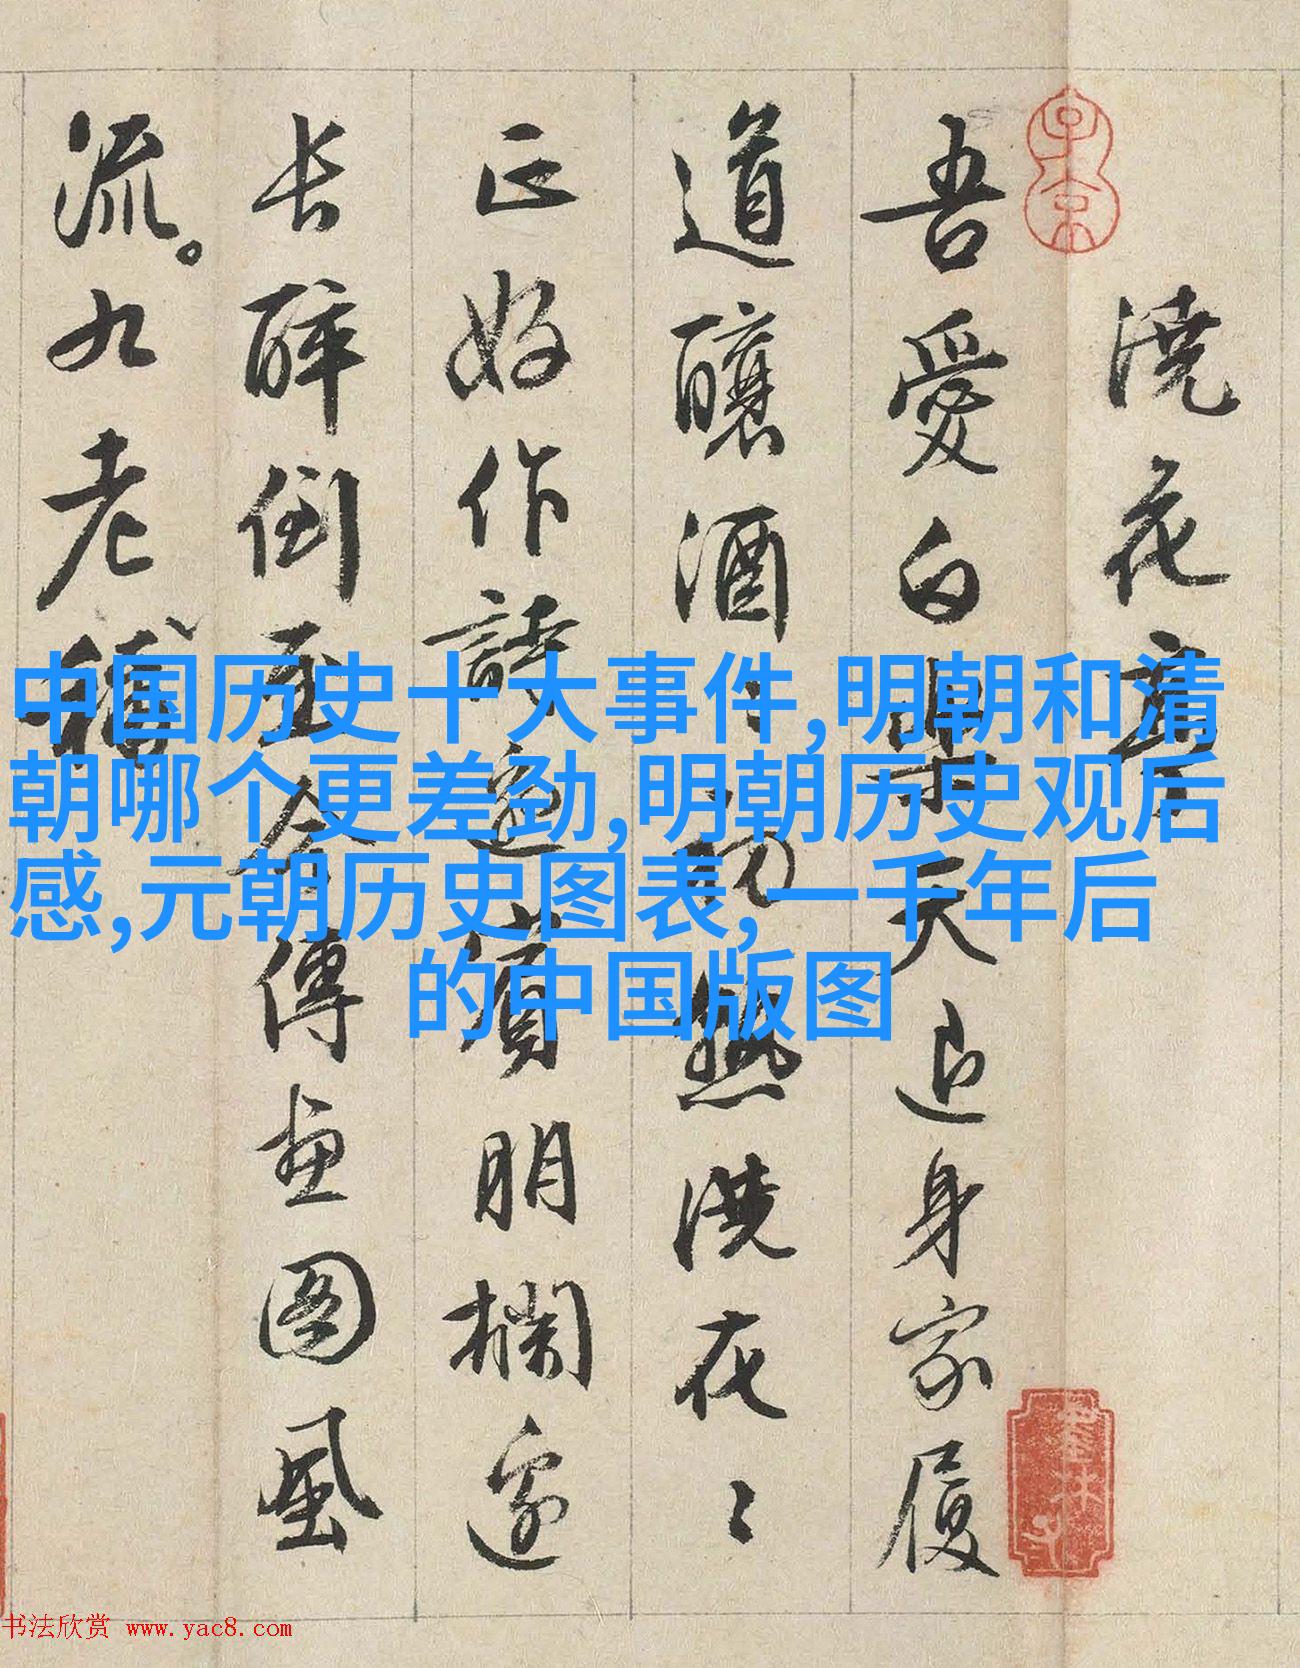 澆花亭
吾愛白樂天退身家履
道釀酒〻初熟澆花〻
正好作詩邀賓朋欄邊
長醉倒至今傳畫圖風
流。九老稱
子京
中国历史十大事件,明朝和清
朝哪个更差劲,明朝历史观后
感,元朝历史图表,一千年后
的中国版图
书法欣赏 www.yac8.com